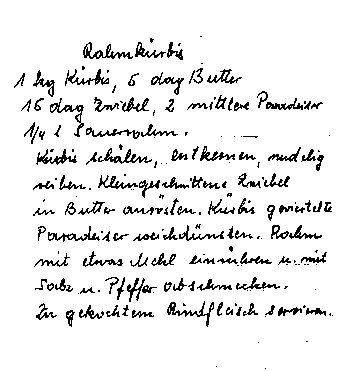 Rahmkürbis
1 kg Kürbis, 5 dag Butter
15 dag Zwiebel, 2 mittlere Paradeiser
1/4 l Sauerrahm.
Kürbis schälen, entkernen, nudelig
reiben. Kleingeschnittene Zwiebel
in Butter anrösten. Kürbis geviertelte
Paradeiser weichdünsten. Rahm
mit etwas Mehl einrühren u. mit
Salz u. Pfeffer abschmecken.
Zu gekochtem Rindfleisch servieren.